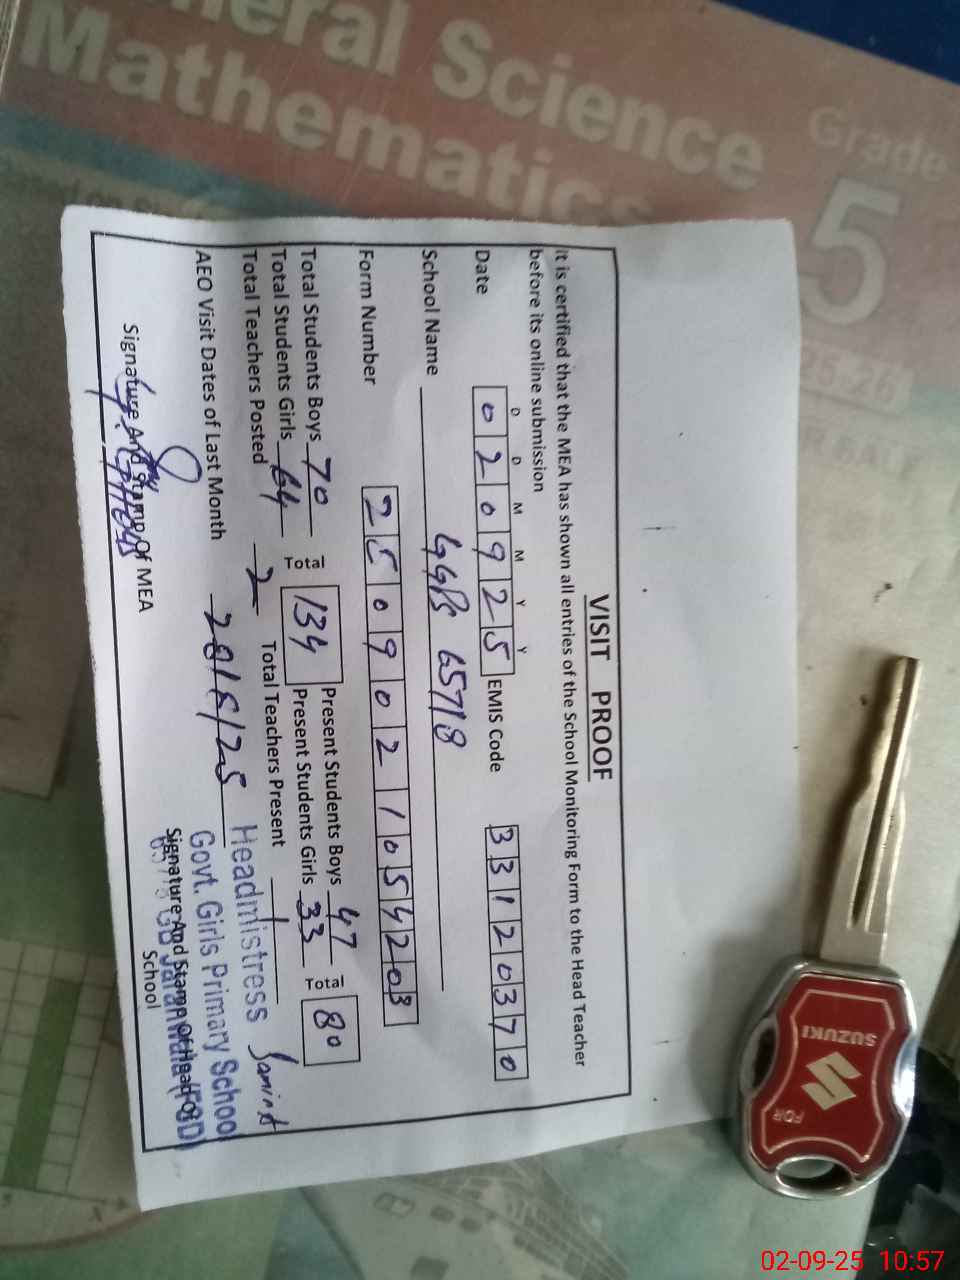 General Science
Mathematics
Grade
5
VISIT PROOF
It is certified that the MEA has shown all entries of the School Monitoring Form to the Head Teacher
before its online submission
D D M M Y Y
Date 0 2 0 9 2 5 EMIS Code 3 3 1 2 0 3 7 0
School Name GGPS 657 18
Form Number 2 5 0 9 0 2 1 0 5 4 2 0 3
Total Students Boys 70 Total 134 Present Students Boys 47 Total 80
Total Students Girls 64 Present Students Girls 33
Total Teachers Posted 2 Total Teachers Present 1
AEO Visit Dates of Last Month 28/8/25
Headmistress
Govt. Girls Primary School
Jaranwala (FSD)
Signature And Stamp Of MEA
Signature And Stamp Of Head Of
School
SUZUKI
FOR
02-09-25 10:57